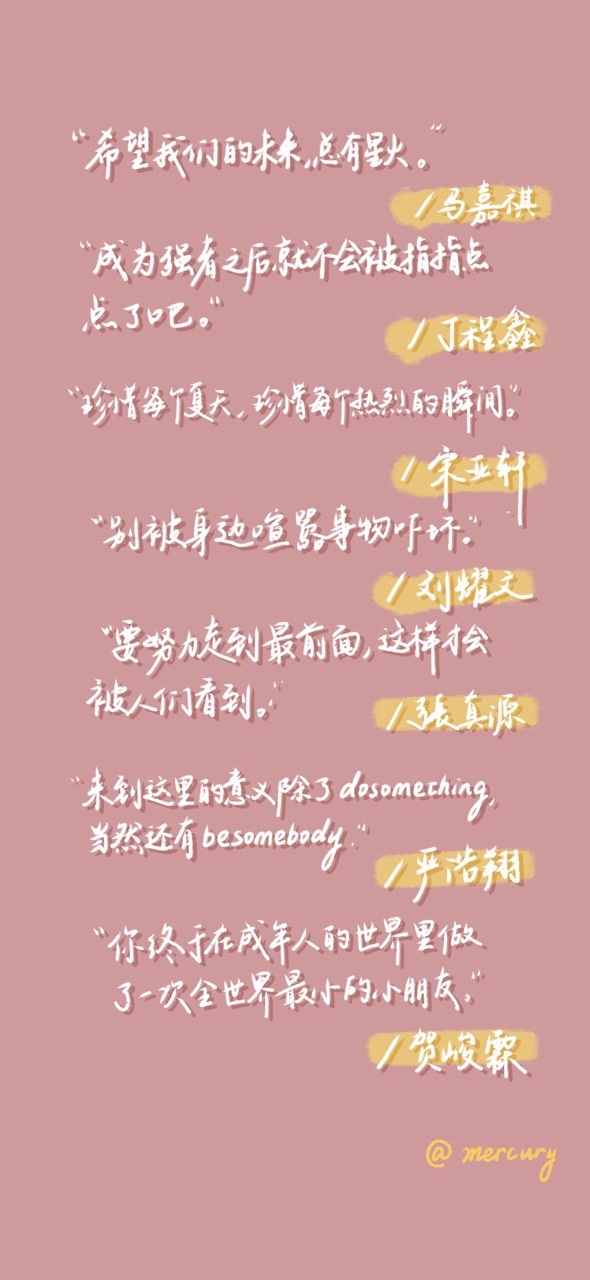 “希望我们的未来,总有星火。”
/马嘉祺
“成为强者之后,就不会被指指点
点了吧。”
/丁程鑫
“珍惜每个夏天,珍惜每个热烈的瞬间。”
/宋亚轩
“别被身边喧嚣事物吓坏。”
/刘耀文
“要努力走到最前面,这样才会
被人们看到。”
/張真源
“来到这里的意义除了dosomething,
当然还有besomebody.”
/严浩翔
“你终于在成年人的世界里做
了一次全世界最小的小朋友。”
/贺峻霖
@mercury